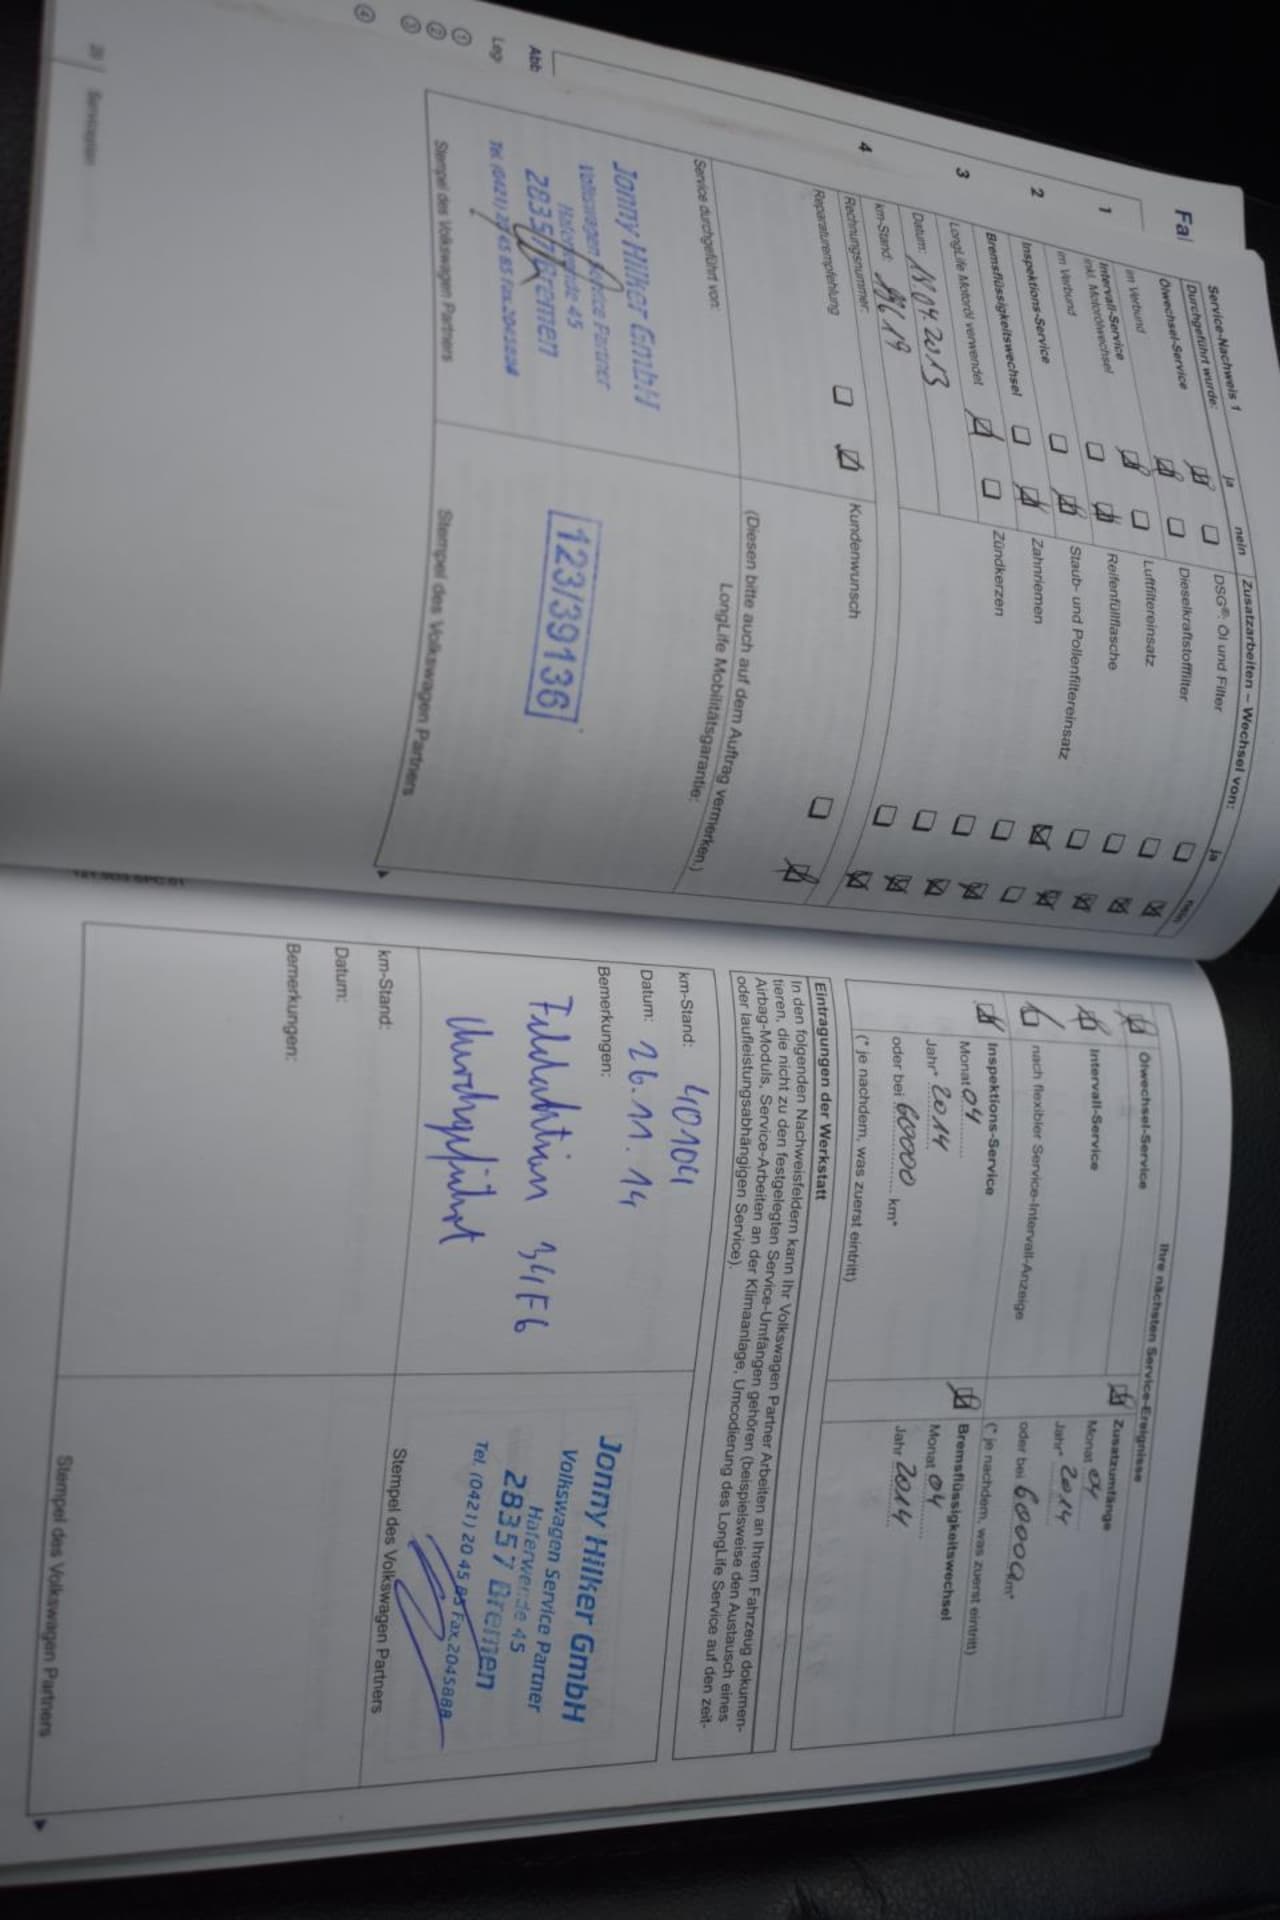 Fal
1
2
3
4
Abb
Leg
①
②
③
④
28 Serviceplan
Service-Nachweis 1
Durchgeführt wurde: ja nein
Ölwechsel-Service
im Verbund
Intervall-Service
inkl. Motorölwechsel
im Verbund
Inspektions-Service
Bremsflüssigkeitswechsel
LongLife Motoröl verwendet
Datum:
km-Stand:
Rechnungsnummer:
Reparaturempfehlung
Zusatzarbeiten – Wechsel von: ja nein
DSG®: Öl und Filter
Dieselkraftstofffilter
Luftfiltereinsatz
Reifenfüllflasche
Staub- und Pollenfiltereinsatz
Zahnriemen
Zündkerzen
Kundenwunsch
Service durchgeführt von:
(Diesen bitte auch auf dem Auftrag vermerken.)
LongLife Mobilitätsgarantie:
Jonny Hilker GmbH
Volkswagen Service Partner
Haferwende 45
28357 Bremen
Tel. (0421) 20 45 85 Fax. 2045888
Stempel des Volkswagen Partners
123/39136
Stempel des Volkswagen Partners
Ihre nächsten Service-Ereignisse
Ölwechsel-Service
Intervall-Service
nach flexibler Service-Intervall-Anzeige
Inspektions-Service
Monat 04
Jahr* 2014
oder bei 60000 km*
(* je nachdem, was zuerst eintritt)
Zusatzumfänge
Monat 04
Jahr* 2014
oder bei 60000 km*
(* je nachdem, was zuerst eintritt)
Bremsflüssigkeitswechsel
Monat 04
Jahr 2014
Eintragungen der Werkstatt
In den folgenden Nachweisfeldern kann Ihr Volkswagen Partner Arbeiten an Ihrem Fahrzeug dokumen-
tieren, die nicht zu den festgelegten Service-Umfängen gehören (beispielsweise den Austausch eines
Airbag-Moduls, Service-Arbeiten an der Klimaanlage, Umcodierung des LongLife Service auf den zeit-
oder laufleistungsabhängigen Service).
km-Stand: 40104
Datum: 26.11.14
Bemerkungen:
Feldaktion 34F6
durchgeführt
Jonny Hilker GmbH
Volkswagen Service Partner
Haferwende 45
28357 Bremen
Tel. (0421) 20 45 85 Fax. 2045888
Stempel des Volkswagen Partners
km-Stand:
Datum:
Bemerkungen:
Stempel des Volkswagen Partners